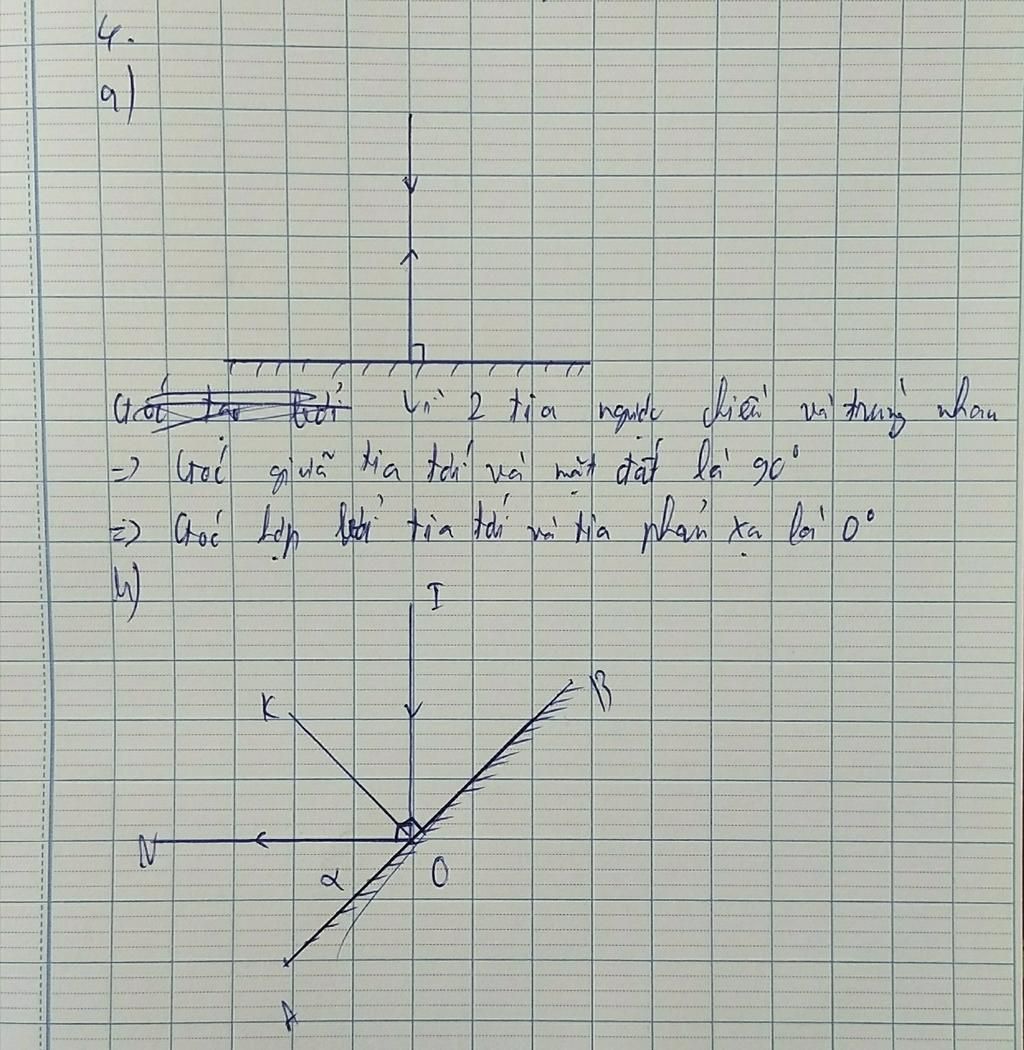 4.
a)
Vì 2 tia ngược chiều và trùng nhau
=> Góc giữa tia tới và mặt đất là 90°
=> Góc hợp bởi tia tới và tia phản xạ là 0°
b)
I
K
B
N
α
O
A